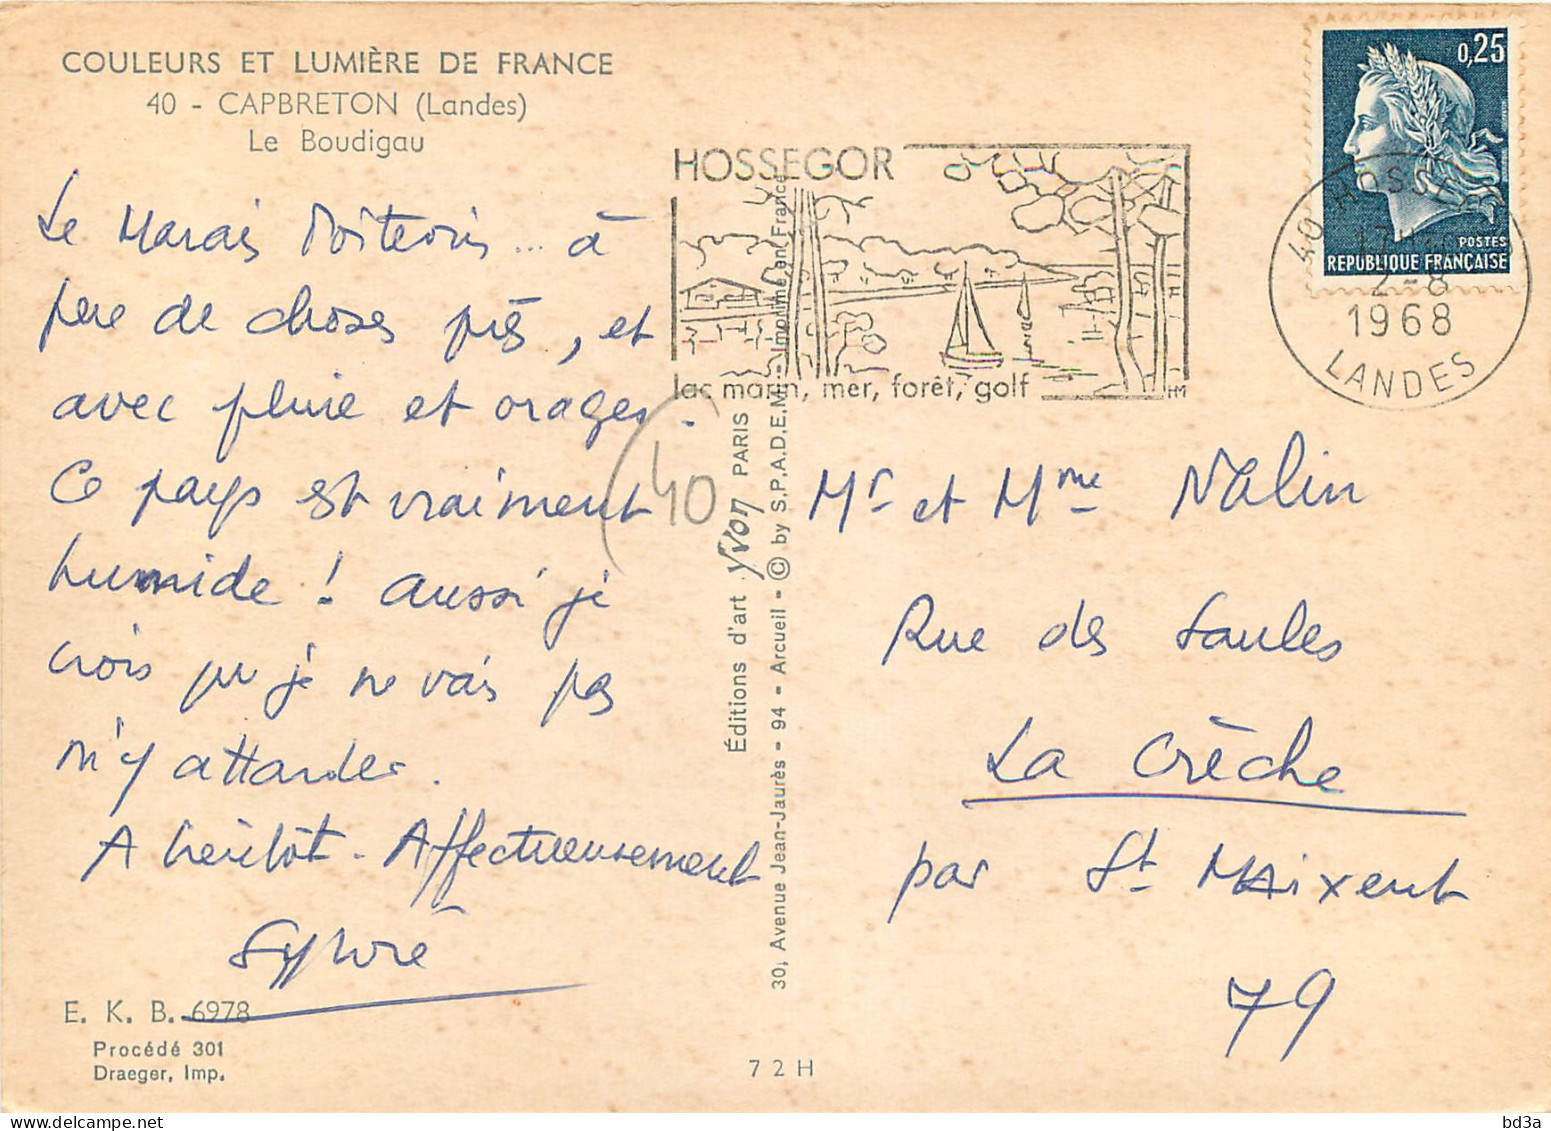 COULEURS ET LUMIÈRE DE FRANCE
40 - CAPBRETON (Landes)
Le Boudigau
Le Marais Poitevin... à
peu de choses près, et
avec pluie et orages.
Ce pays est vraiment
humide ! aussi je
crois que je ne vais pas
m'y attarder.
A bientôt - Affectueusement
E. K. B. 6978
Procédé 301
Draeger, Imp.
40
Éditions d'art Yvon PARIS
30, Avenue Jean-Jaurès - 94 - Arcueil - © by S.P.A.D.E.M. - Imprimé en France
72H
HOSSEGOR
lac marin, mer, forêt, golf
HM
0,25
POSTES
REPUBLIQUE FRANÇAISE
40 HOSSEGOR
2-8
1968
LANDES
Mr et Mme Nalin
Rue des Saules
La Crèche
par St Maixent
79
bd3a